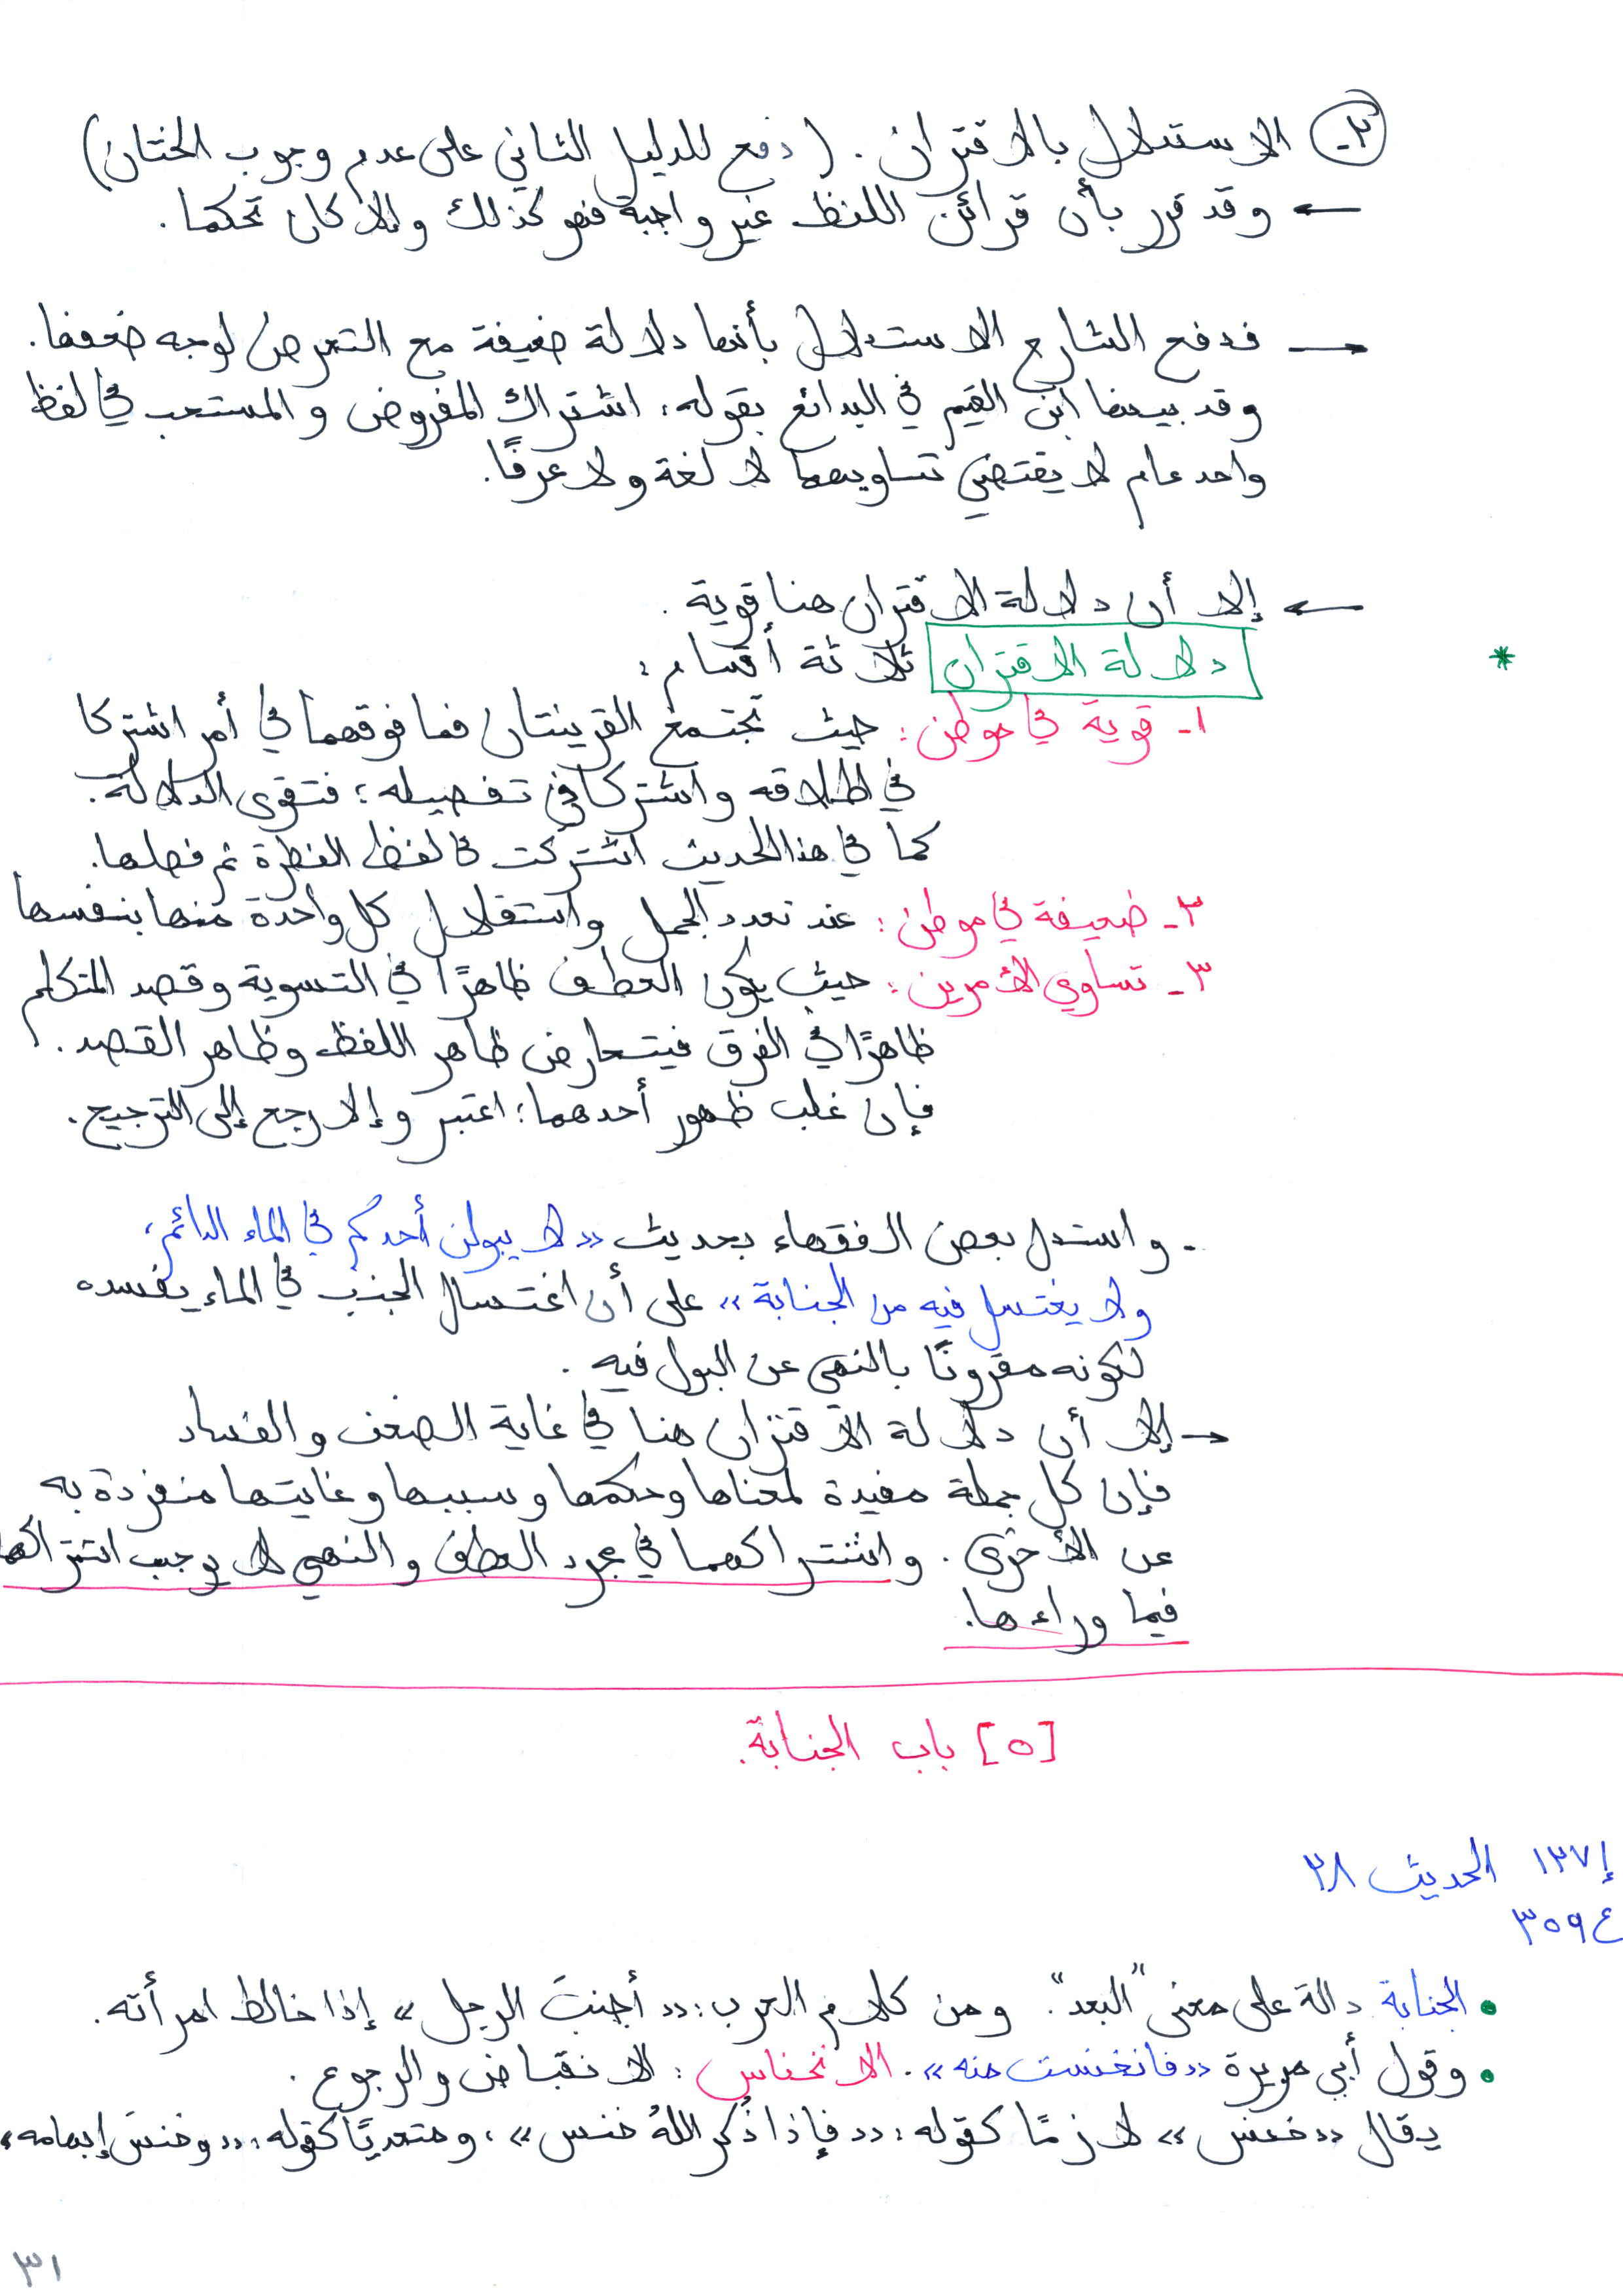 ٢- الاستدلال بالاقتران. (دفع للدليل الثاني على عدم وجوب الختان)
← وقد قرر بأن قرائن اللفظ غير واجبة فهو كذلك وإلا كان تحكما.
← فدفع الشارح الاستدلال بأنها دلالة ضعيفة مع التعرض لوجه ضعفها.
وقد بينها ابن القيم في البدائع بقوله: اشتراك المفروض والمستحب في لفظ
واحد عام لا يقتضي تساويهما لا لغة ولا عرفًا.
← إلا أن دلالة الاقتران هنا قوية.
* دلالة الاقتران ثلاثة أقسام:
١- قوية في موطن: حيث تجتمع القرينتان فما فوقهما في أمر اشتركا
في إطلاقه واشتركا في تفصيله؛ فتقوى الدلالة.
كما في هذا الحديث اشتركت في لفظ الفطرة ثم فصلها.
٢- ضعيفة في موطن: عند تعدد الجمل واستقلال كل واحدة منها بنفسها
٣- تساوي الأمرين: حيث يكون العطف ظاهرًا في التسوية وقصد المتكلم
ظاهرًا في الفرق فيتعارض ظاهر اللفظ وظاهر القصد.
فإن غلب ظهور أحدهما؛ اعتبر وإلا رجع إلى الترجيح.
- واستدل بعض الفقهاء بحديث «لا يبولن أحدكم في الماء الدائم،
ولا يغتسل فيه من الجنابة» على أن اغتسال الجنب في الماء يفسده
لكونه مقرونًا بالنهي عن البول فيه.
← إلا أن دلالة الاقتران هنا في غاية الضعف والفساد
فإن كل جملة مفيدة لمعناها وحكمها وسببها وغايتها منفردة به
عن الأخرى. واشتراكهما في مجرد العطف والنهي لا يوجب اشتراكهما
فيما وراءها.
[٥] باب الجنابة.
إ ١٣٧١ الحديث ٢٨
ع ٣٥٩
• الجنابة دالة على معنى "البعد". ومن كلام العرب: «أجنبَ الرجل» إذا خالط امرأته.
• وقول أبي هريرة «فانخنست منه». الانخناس: الانقباض والرجوع.
يقال «خنس» لازمًا كقوله: «فإذا ذُكر اللهُ خنس»، ومتعديًا كقوله: «وخنسَ إبهامه»
٣١